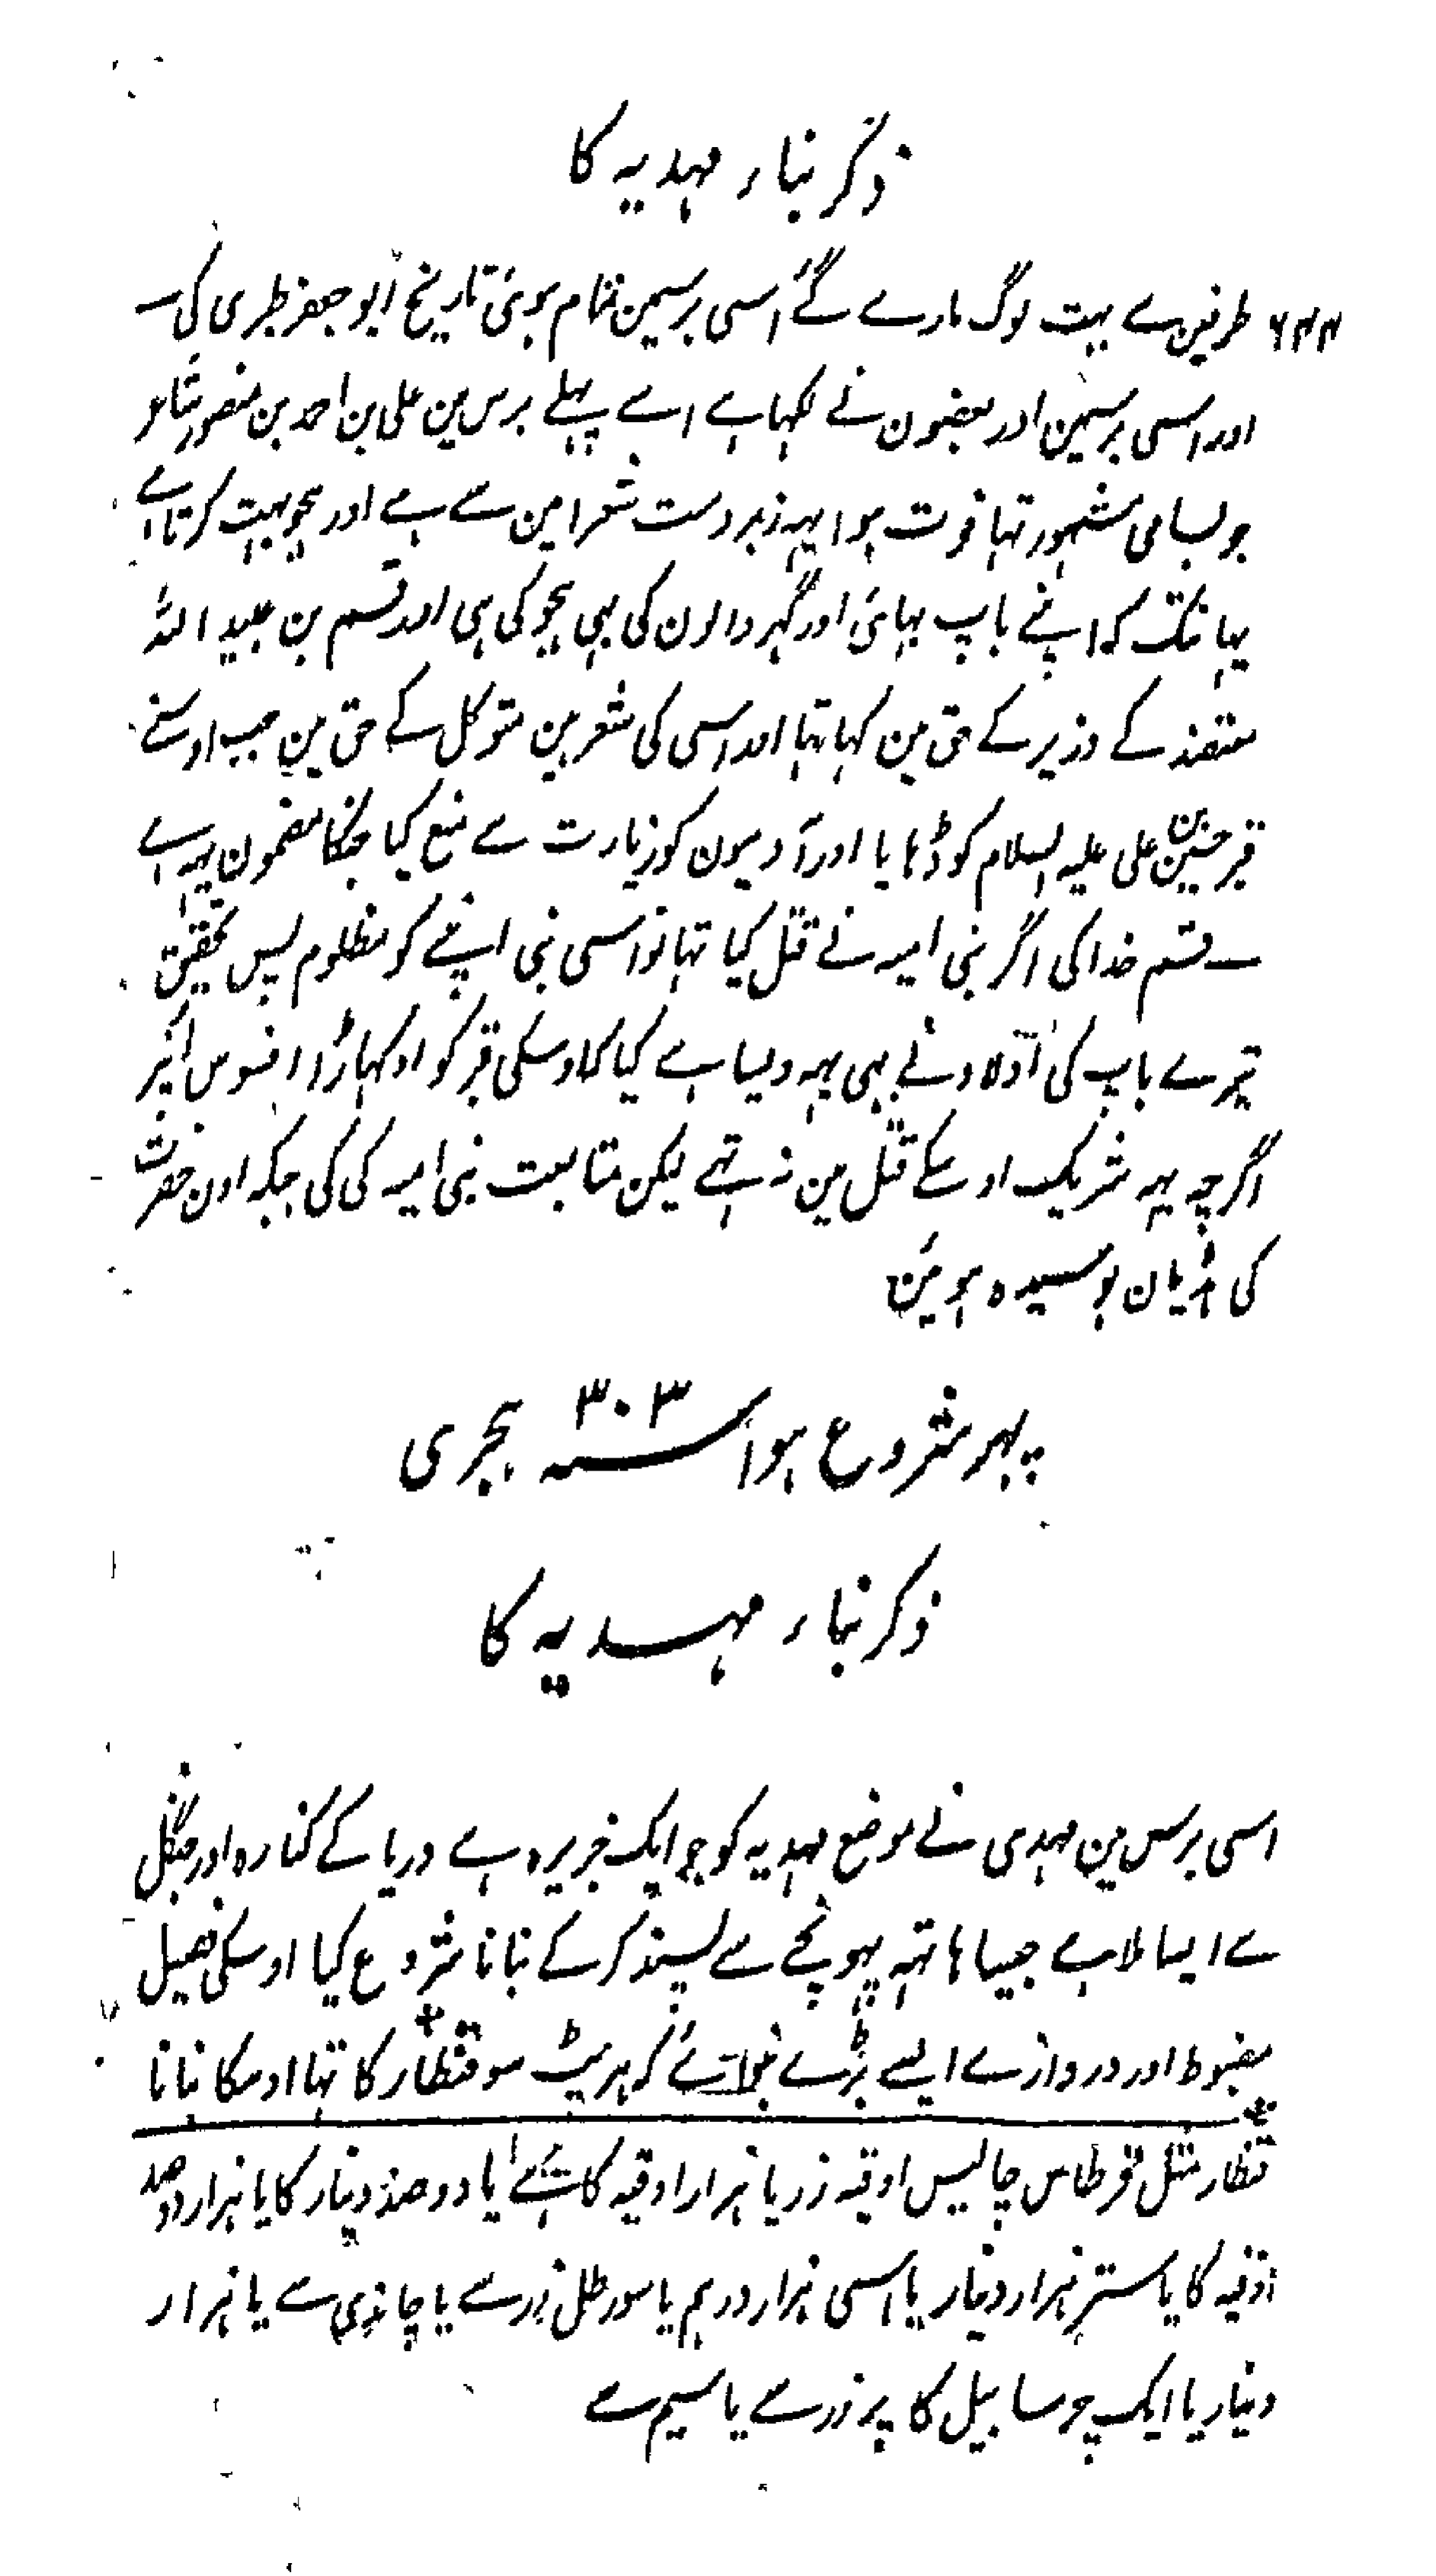 ذکر بناء مہدیہ کا
۶۴۴ طرفین سے بہت لوگ مارے گئے اسی برسمین تمام ہوئی تاریخ ابو جعفر طبری کی
اور اسی برسمین اور بعضون نے لکہا ہے اسے پہلے برس مین علی بن احمد بن منصور شاعر
جو بسامی مشہور تہا فوت ہوا یہہ زبردست شعرا مین سے ہے اور ہجو بہت کرتا ہے
یہانتک کہ اپنے باپ بہائی اور گہر والون کی بہی ہجو کی ہی اور قسم بن عبید اللہ
معتضد کے وزیر کے حق مین کہا تہا اور اسی کی شعر ہین متوکل کے حق مین جب اوسنے
قبر حسین بن علی علیہ السلام کو ڈہایا اور آدمیون کو زیارت سے منع کیا جنکا مضمون یہہ ہے
قسم خدا کی اگر بنی امیہ نے قتل کیا تہا نواسی نبی اپنے کو مظلوم پس تحقیق
تیرے باپ کی اولاد نے بہی یہہ ویسا ہے کیا کہ اوسکی قبر کو اوکہاڑا افسوس
اگرچہ یہہ شریک اوسکے قتل مین نہ تہے لیکن متابعت بنی امیہ کی کی جبکہ اون حضرت
کی ہڈیان بوسیدہ ہوئین
پہر شروع ہوا سنہ ۳۰۳ ہجری
ذکر بناء مہدیہ کا
اسی برس مین مہدی نے موضع مہدیہ کو جو ایک جزیرہ ہے دریا کے کنارہ اور جنگل
سے ایسا ملا ہے جیسا ہاتہہ پہونچے سے پسند کرکے بنانا شروع کیا اوسکی فصیل
مضبوط اور دروازے ایسے بڑے بنوائے کہ ہر پٹ سو قنطار کا تہا اوسکا بنانا
قنطار مثل قرطاس چالیس اوقیہ زر یا ہزار اوقیہ کا ہے یا دو صد دینار کا یا ہزار دو صد
اوقیہ کا یا ستر ہزار دینار یا اسی ہزار درہم یا سو رطل زر سے یا چاندی سے یا ہزار
دینار یا ایک چرسا بیل کا پر زر سے یا سیم سے